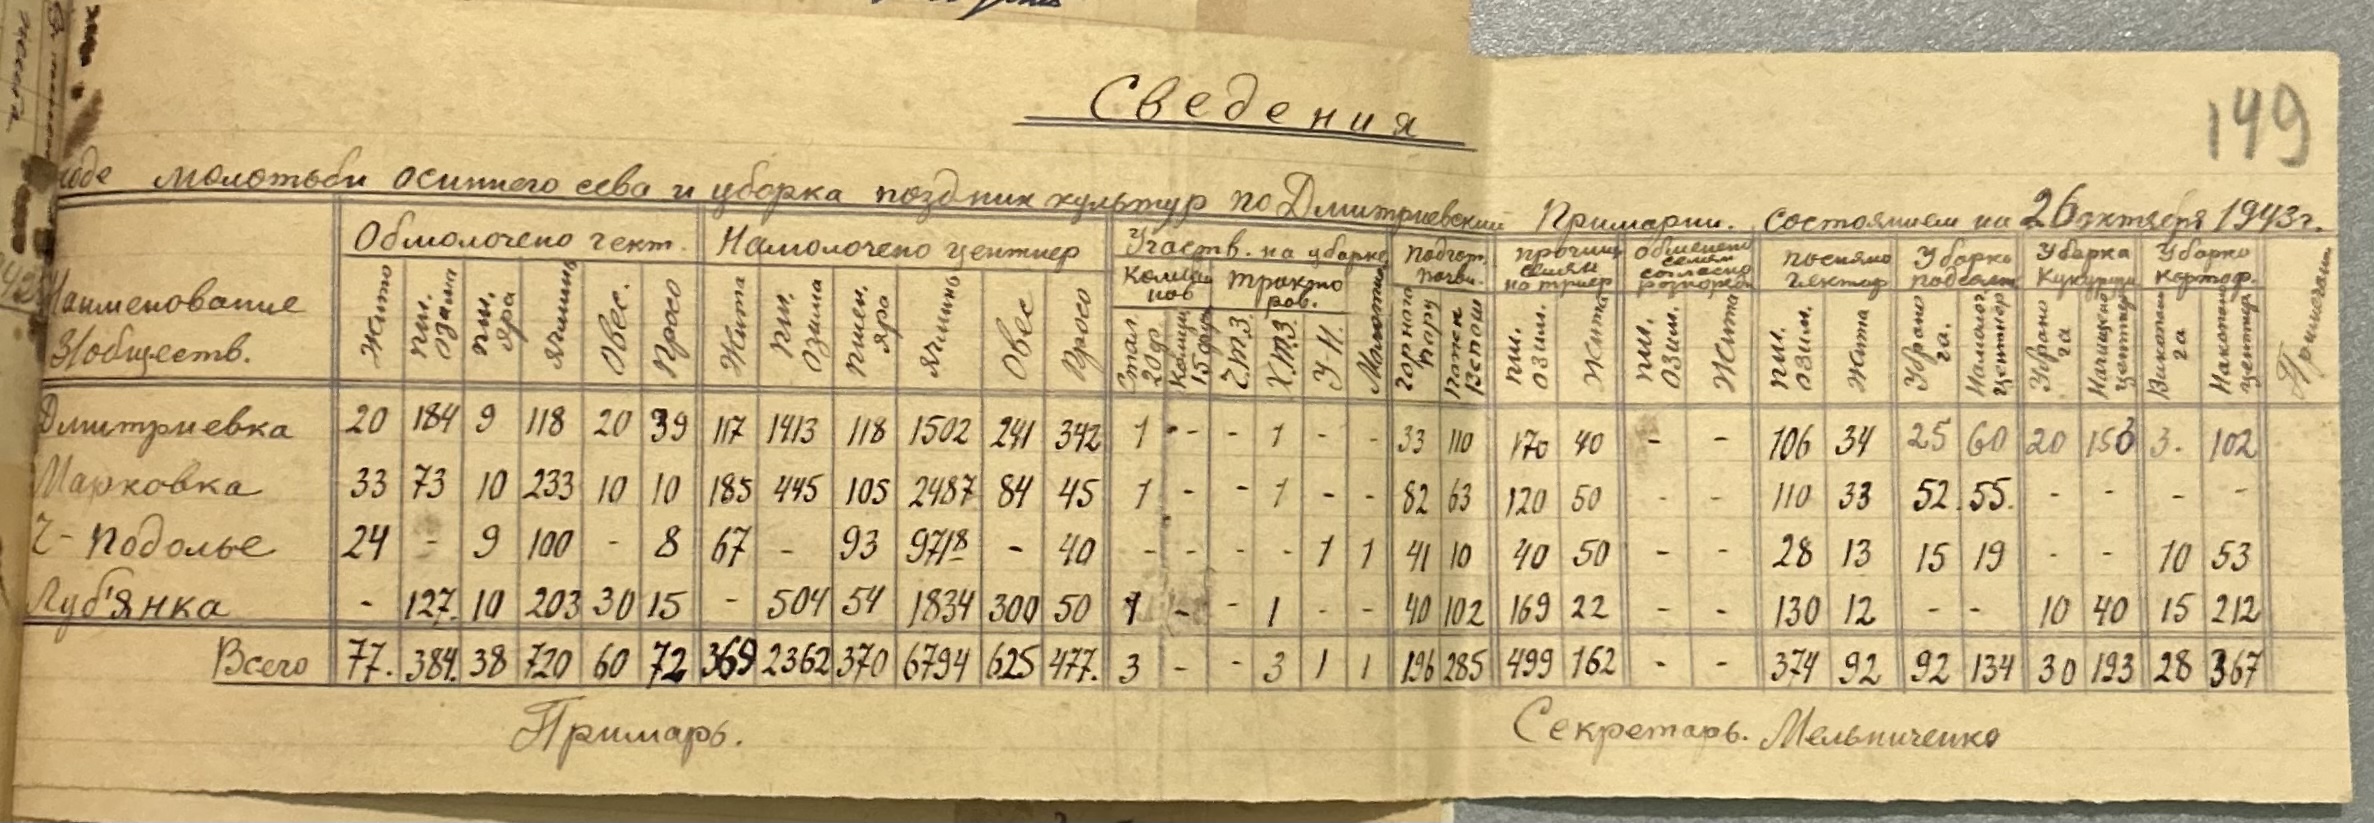 149
Сведения
ходе молотьби осиннего сева и уборка поздних культур по Дмитриевский Примарии. состоянием на 26 октября 1943г.
Наименование З/обществ. Обмолочено гект. Намолочено центнер Участв. на уборке Подгот. почви. прочищ семян на триер обменено семян согласно посияно гектар Уборка подсолн Уборка Кукурузи Уборка картоф. Примечан
Комбай нов Тракто ров.
Жито Пш. Озима Пш. Яра Ячмінь Овес. Просо Жита Пш. Озима Пшен. яра Ячмінь Овес Просо Стал. 20ф. Комун. 15фут Ч.Т.З. Х.Т.З У-Н. Молотил Горного пару Пожен Вспаш Пш. озим. Жита Пш. Озим. Жита Пш. озим. Жита Убрано га. Намолоч центнер Убрано га Начищено центнер Викопан га Накопано центнер
Дмитриевка 20 184 9 118 20 39 117 1413 118 1502 241 342 1 - - 1 - - 33 110 170 40 - - 106 34 25 60 20 153 3. 102
Марковка 33 73 10 233 10 10 185 445 105 2487 84 45 1 - - 1 - - 82 63 120 50 - - 110 33 52. 55. - - - -
Ч- Подолье 24 - 9 100 - 8 67 - 93 971 - 40 - - - - 1 1 41 10 40 50 - - 28 13 15 19 - - 10 53
Луб'янка - 127. 10 203 30 15 - 504 54 1834 300 50 1 - - 1 - - 40 102 169 22 - - 130 12 - - 10 40 15 212
Всего 77. 384. 38 720 60 72 369 2362 370 6794 625 477. 3 - - 3 1 1 196 285 499 162 - - 374 92 92 134 30 193 28 367
Примарь. Секретарь. Мельниченко